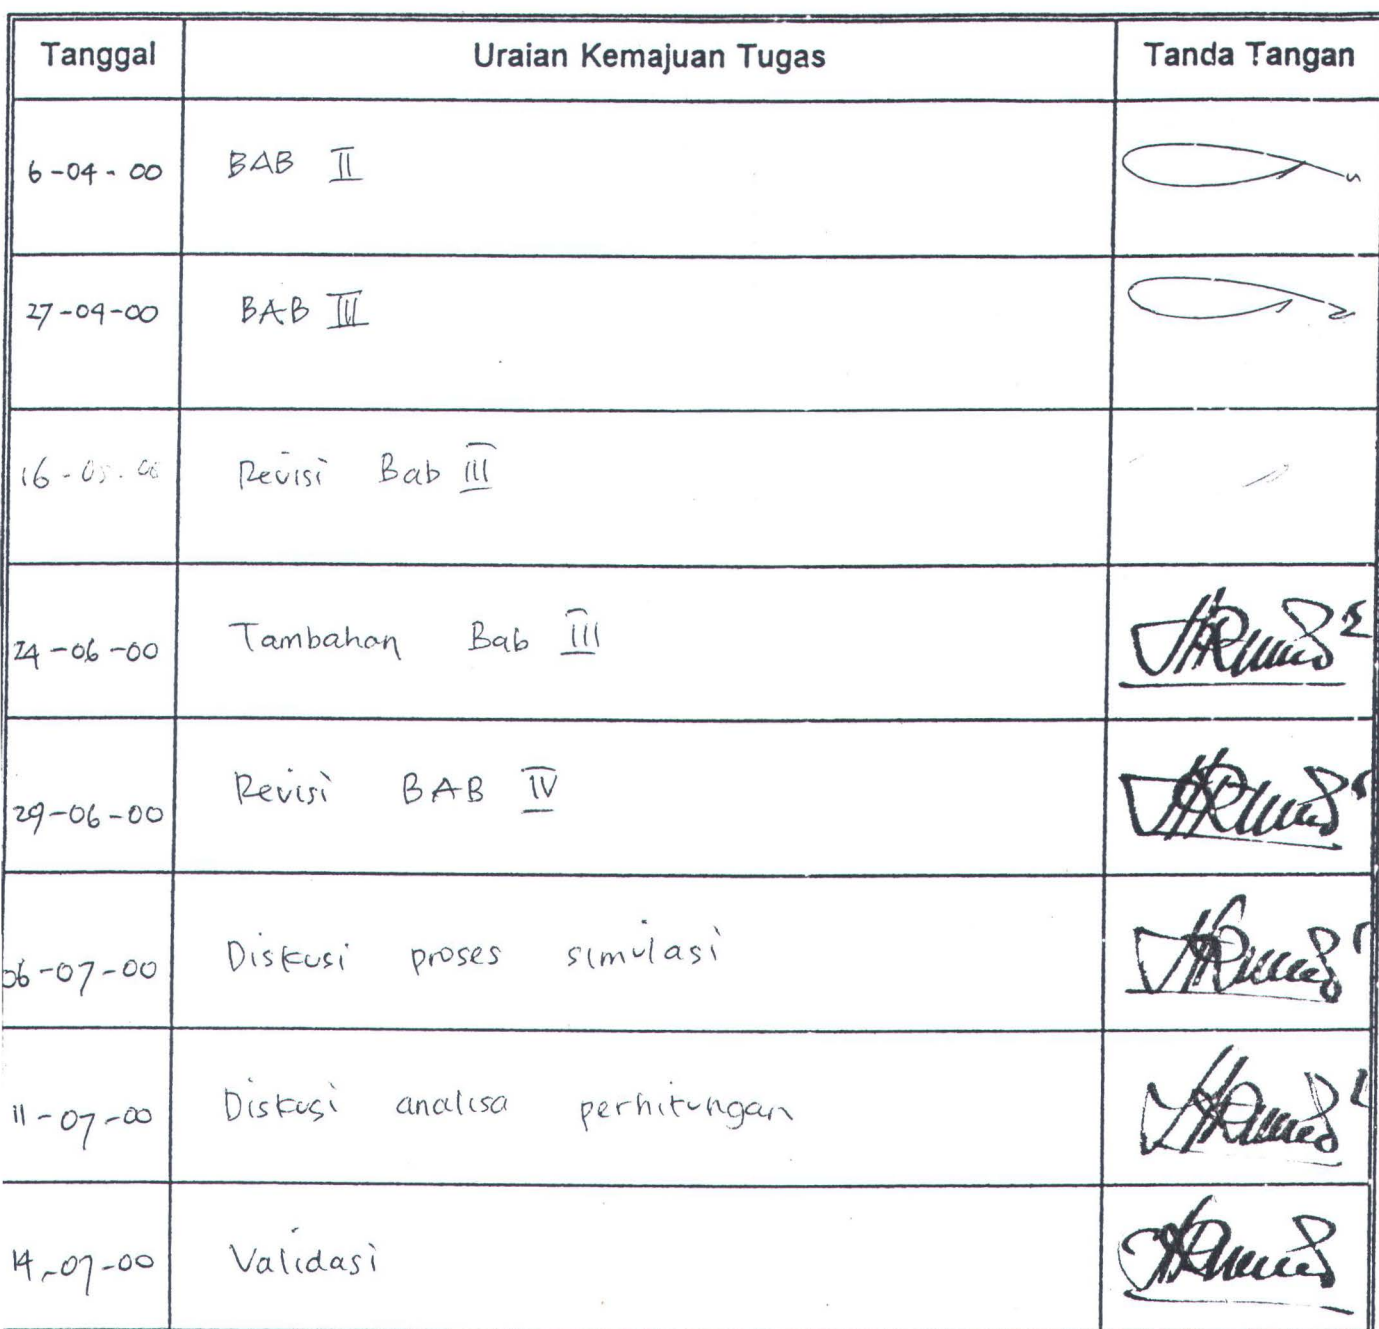 Tanggal Uraian Kemajuan Tugas Tanda Tangan
6-04-00 BAB II
27-04-00 BAB III
16-05-00 Revisi Bab III
24-06-00 Tambahan Bab III
29-06-00 Revisi BAB IV
06-07-00 Diskusi proses simulasi
11-07-00 Diskusi analisa perhitungan
14-07-00 Validasi